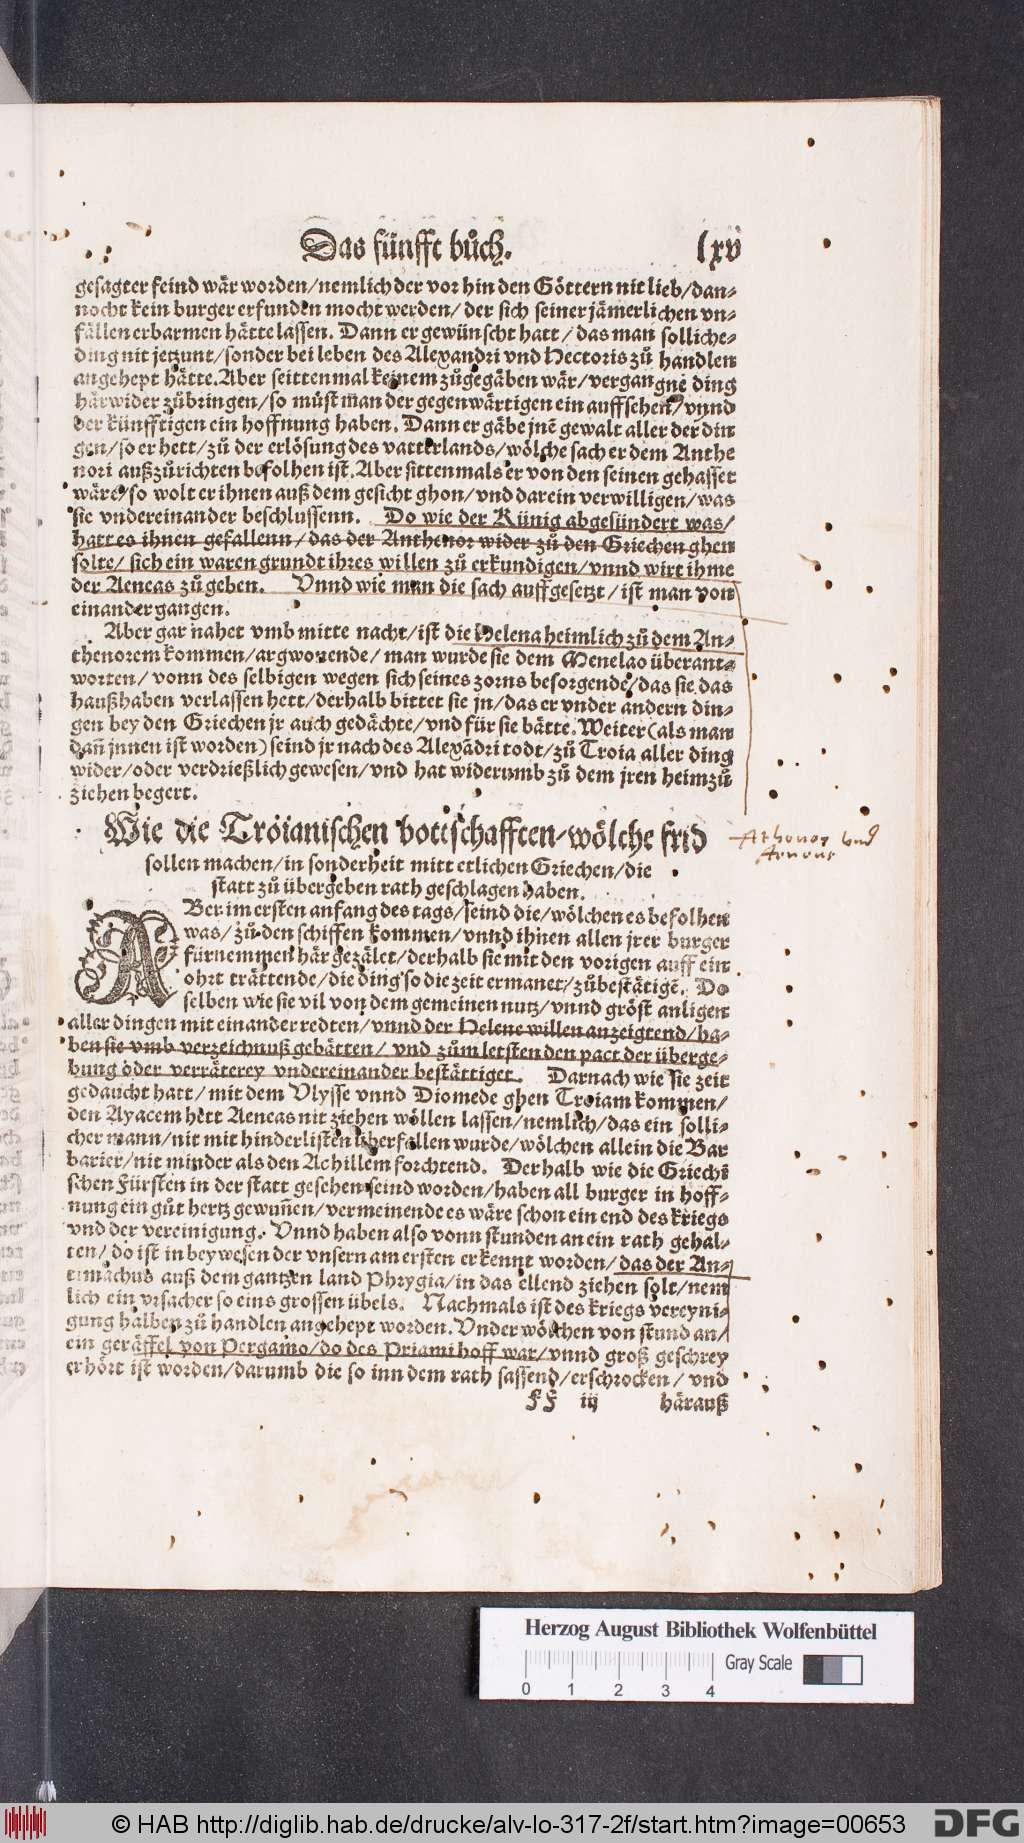 Das fünfft bůch. lxv
gesagter feind wär worden/nemlich der vor hin den Göttern nit lieb/dan-
nocht kein burger erfunden mocht werden/der sich seiner jämerlichen vn-
fällen erbarmen hätte lassen. Dann er gewünscht hatt/das man solliche-
ding nit jetzunt/sonder bei leben des Alexandri vnd Hectoris zů handlen
angehept hätte. Aber seittenmal keinem zůgegäben wär/vergangne ding
härwider zůbringen/so můst man der gegenwärtigen ein auffsehen/vnnd
der künfftigen ein hoffnung haben. Dann er gäbe jnē gewalt aller der din
gen/so er hett/zů der erlösung des vatterlands/wölche sach er dem Anthe
nori außzůrichten befolhen ist. Aber sittenmals er von den seinen gehasset
wäre/so wolt er ihnen auß dem gesicht ghon/vnd darein verwilligen/was
sie vndereinander beschlussenn. Do wie der Künig abgesündert was/
hatt es ihnen gefallenn/das der Anthenor wider zů den Griechen ghen
solte/sich ein waren grundt ihres willen zů erkundigen/vnnd wirt ihme
der Aeneas zůgeben. Vnnd wie man die sach auffgesetzt/ist man von
einander gangen.
Aber gar nahet vmb mitte nacht/ist die Helena heimlich zů dem An-
thenorem kommen/argwonende/man wurde sie dem Menelao überant-
worten/vonn des selbigen wegen sich seines zorns besorgende/das sie das
haußhaben verlassen hett/derhalb bittet sie jn/das er vnder andern din-
gen bey den Griechen jr auch gedächte/vnd für sie bätte. Weiter (als man
dañ jnnen ist worden) seind jr nach des Alexādri todt/zů Troia aller ding
wider/oder verdrießlich gewesen/vnd hat widerumb zů dem jren heimzů
ziehen begert.
Wie die Tröianischen bottschafften/wölche frid
sollen machen/in sonderheit mitt etlichen Griechen/die
statt zů übergeben rath geschlagen haben.
ABer im ersten anfang des tags/seind die/wölchen es befolhen
was/zů den schiffen kommen/vnnd ihnen allen jrer burger
fürnemmen här gezälet/derhalb sie mit den vorigen auff ein
ohrt trättende/die ding so die zeit ermanet/zůbestätigē. Do
selben wie sie vil von dem gemeinen nutz/vnnd gröst anligen
aller dingen mit einander redten/vnnd der Helene willen anzeigtend/ha-
ben sie vmb verzeichnuß gebätten/vnd zům letsten den pact der überge-
bung oder verräterey vndereinander bestättiget. Darnach wie sie zeit
gedaucht hatt/mit dem Vlysse vnnd Diomede ghen Troiam kommen/
den Ayacem hett Aeneas nit ziehen wöllen lassen/nemlich/das ein solli-
cher mann/nit mit hinderlisten überfallen wurde/wölchen allein die Bar
barier/nit minder als den Achillem forchtend. Derhalb wie die Griechi
schen Fürsten in der statt gesehen seind worden/haben all burger in hoff-
nung ein gůt hertz gewuñen/vermeinende es wäre schon ein end des kriegs
vnd der vereinigung. Vnnd haben also vonn stunden an ein rath gehal-
ten/do ist in beywesen der vnsern am ersten erkennt worden/das der An-
timachus auß dem gantzen land Phrygia/in das ellend ziehen solt/nem
lich ein vrsacher so eins grossen übels. Nachmals ist des kriegs vereyni-
gung halben zů handlen angehept worden. Vnder wölchen von stund an/
ein geräffel von Pergamo/do des Priami hoff war/vnnd groß geschrey
erhört ist worden/darumb die so inn dem rath sassend/erschrocken/vnd
ff iij härauß
vnd
Herzog August Bibliothek Wolfenbüttel
Gray Scale
0 1 2 3 4
© HAB http://diglib.hab.de/drucke/alv-lo-317-2f/start.htm?image=00653
DFG